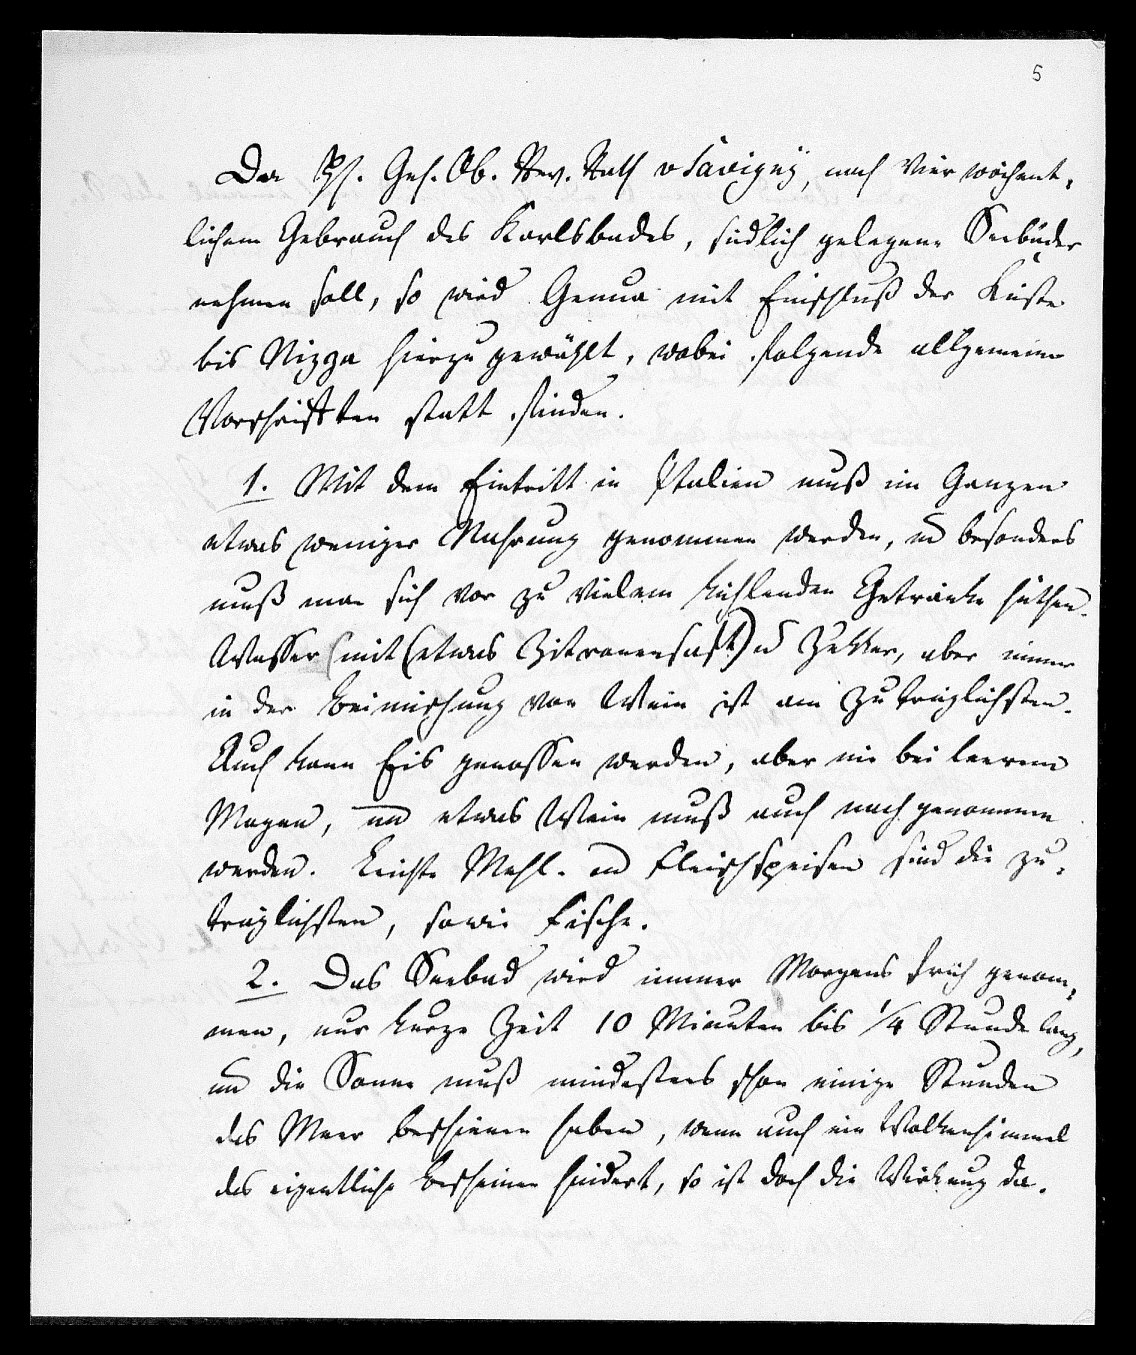 5
Da H. Geh. Ob. Rev. Rath v Savigny, nach vier wöchent,
lichem Gebrauch des Karlsbades, südlich gelegene Seebäder
nehmen soll, so wird Genua mit Einschluß der Küste
bis Nizza hierzu gewählt, wobei folgende allgemeine
Vorschriften statt finden.
1. Mit dem Eintritt in Italien muß im Ganzen
etwas weniger Nahrung genommen werden, und besonders
muß man sich vor zu vielem kühlenden Getränke hüthen.
Wasser (mit (etwas Zitronensaft) u Zukker, aber immer
in der Beimischung von Wein ist am zuträglichsten.
Auch kann Eis genossen werden, aber nie bei leerem
Magen, und etwas Wein muß auch nach genommen
werden. Leichte Mehl- und Fleischspeisen sind die zu-
träglichsten, sowie Fische.
2. Das Seebad wird immer Morgens früh genom,
men, nur kurze Zeit 10 Minuten bis 1/4 Stunde lang,
und die Sonne muß mindestens schon einige Stunden
das Meer beschienen haben, wenn auch ein Wolkenhimmel
das eigentliche Bescheinen hindert, so ist doch die Wirkung da.